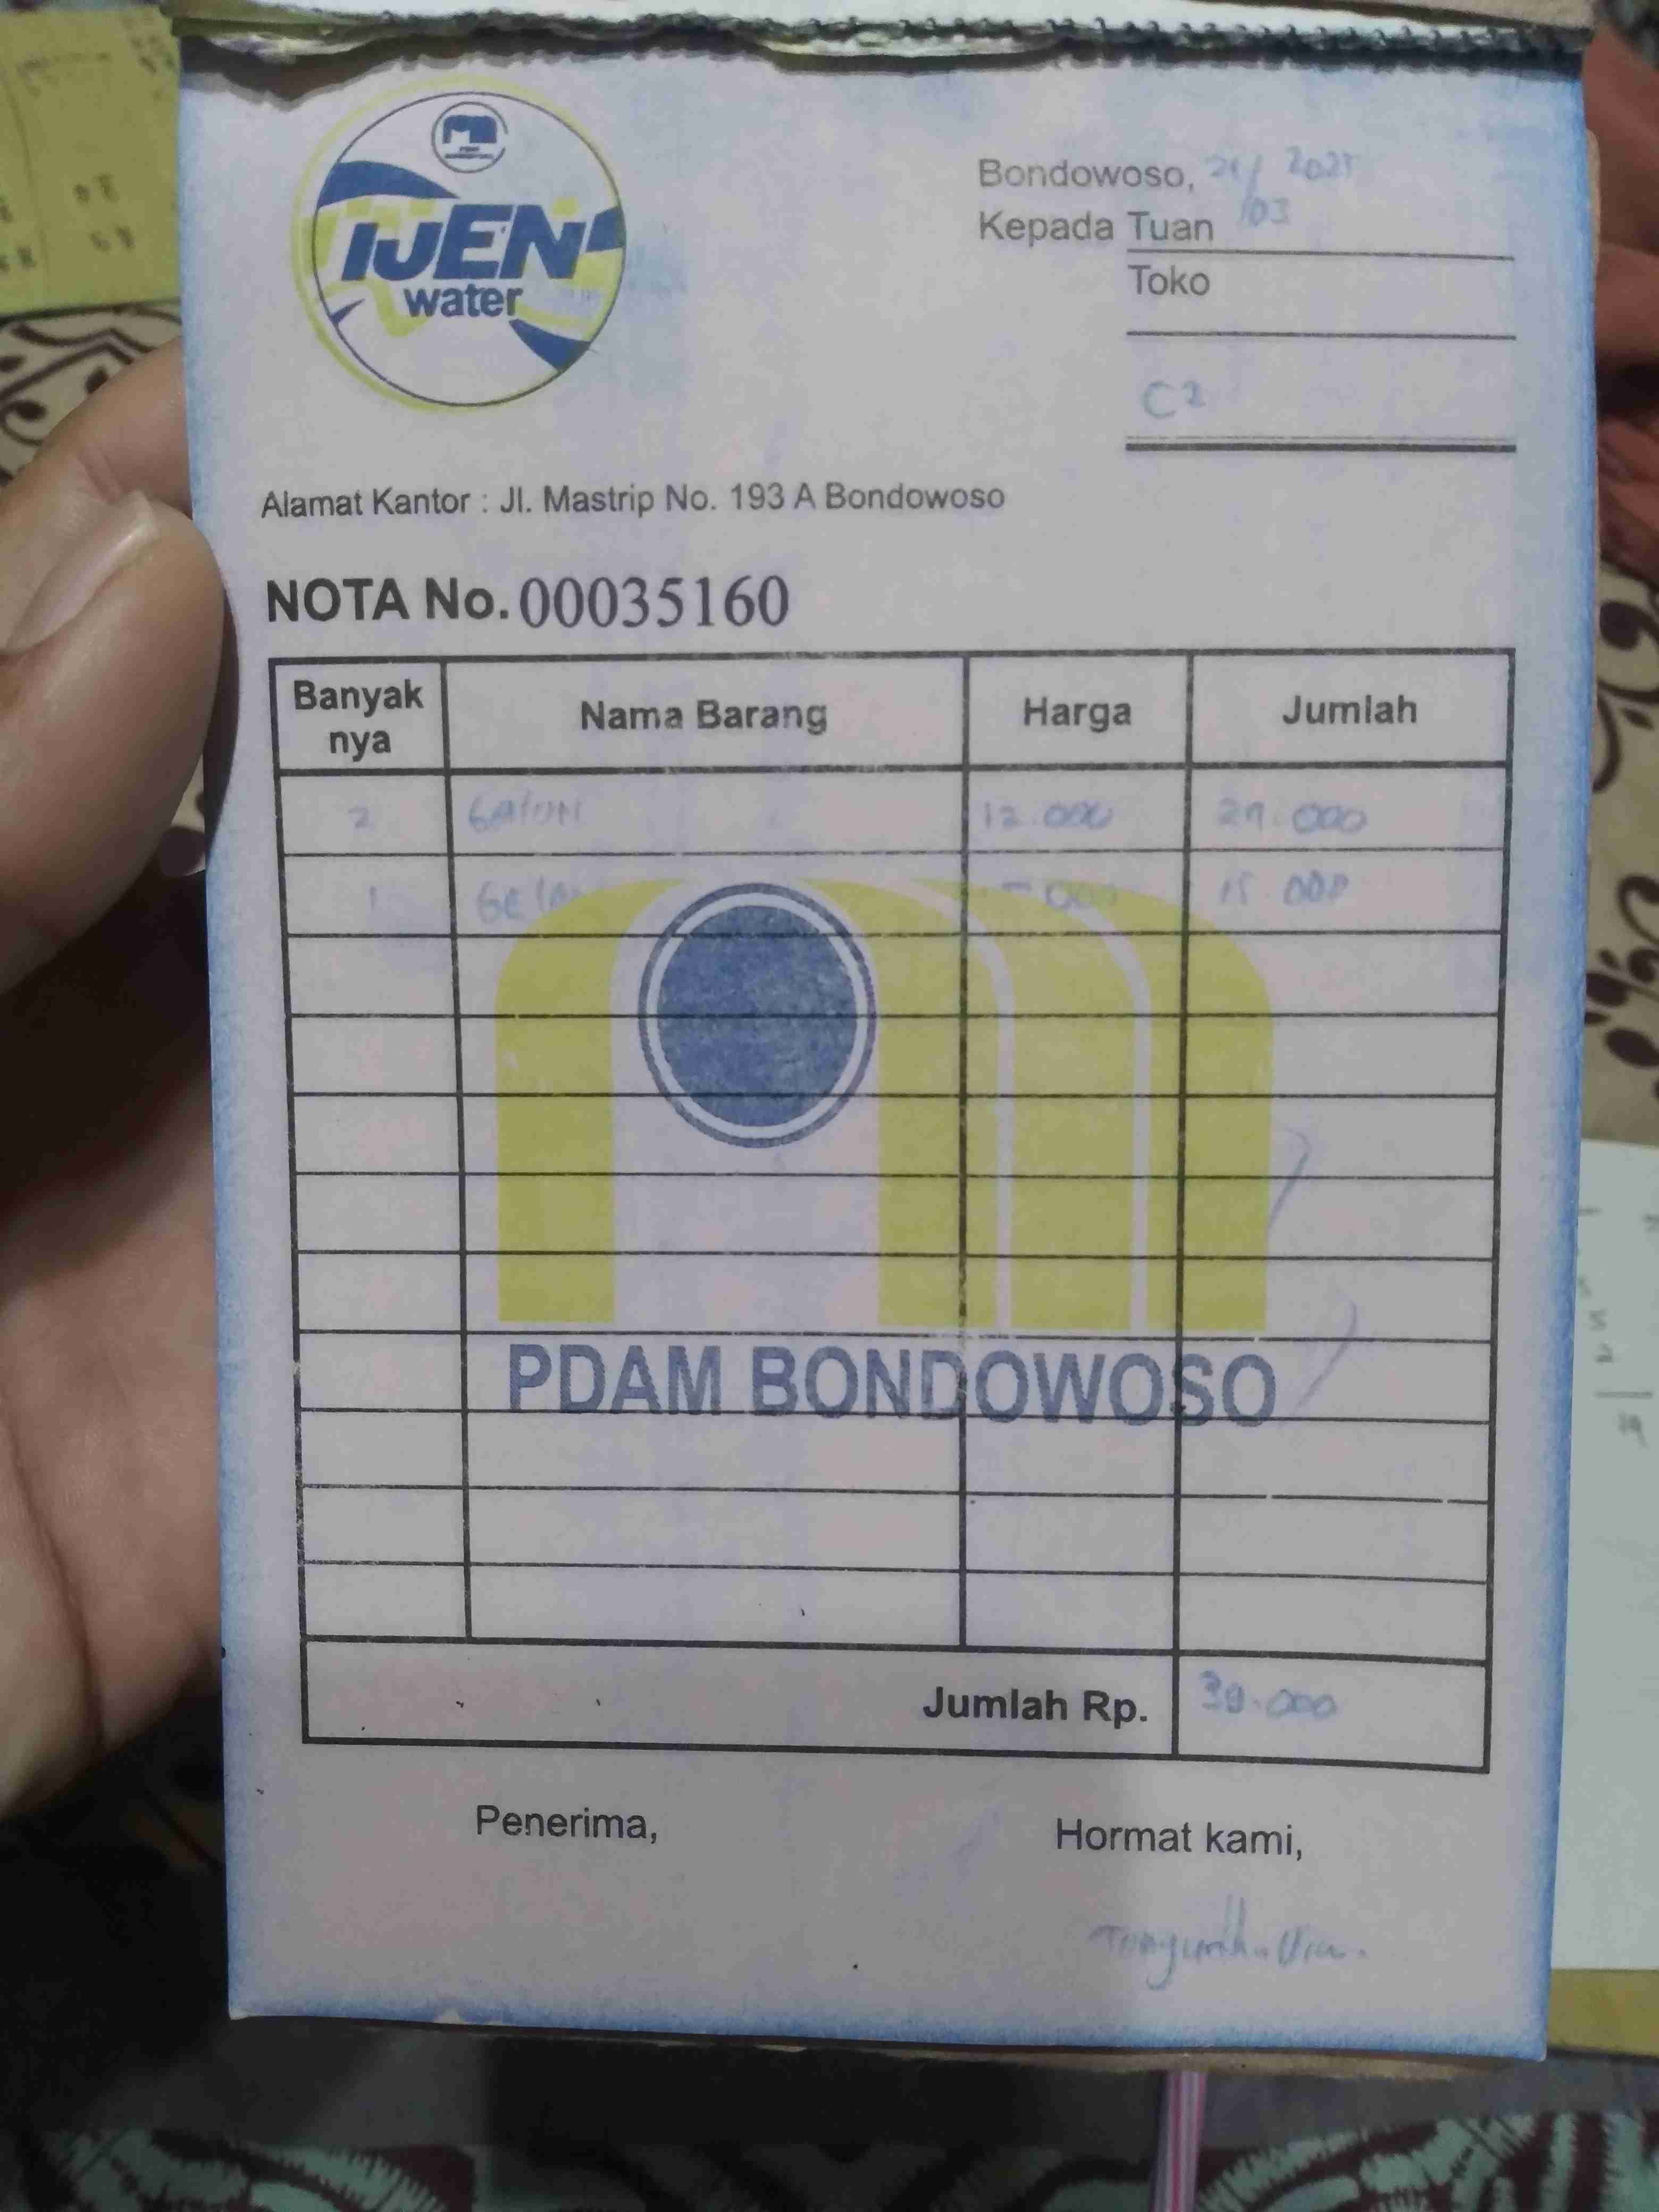 IJEN
water
Bondowoso, 21/03 2025
Kepada Tuan
Toko
C2
Alamat Kantor : Jl. Mastrip No. 193 A Bondowoso
NOTA No. 00035160
Banyak nya Nama Barang Harga Jumlah
2 GAlON 12.000 24.000
1 15.000
PDAM BONDOWOSO
Jumlah Rp. 39.000
Penerima, Hormat kami,